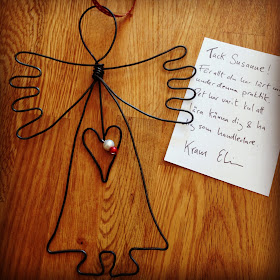 Tack Susanne!
För allt du har lärt
under denna praktik
Det har varit kul att
lära känna dig & ha
dig som handledare
Kram Eli